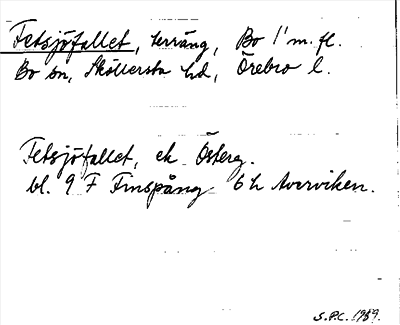 Fetsjöfallet, terräng, Bo 1¹ m.fl.
Bo sn, Sköllersta hd, Örebro l.
Fetsjöfallet, ek Österg.
bl. 9 F Finspång 6 h Averviken.
S.P.C. 1989.